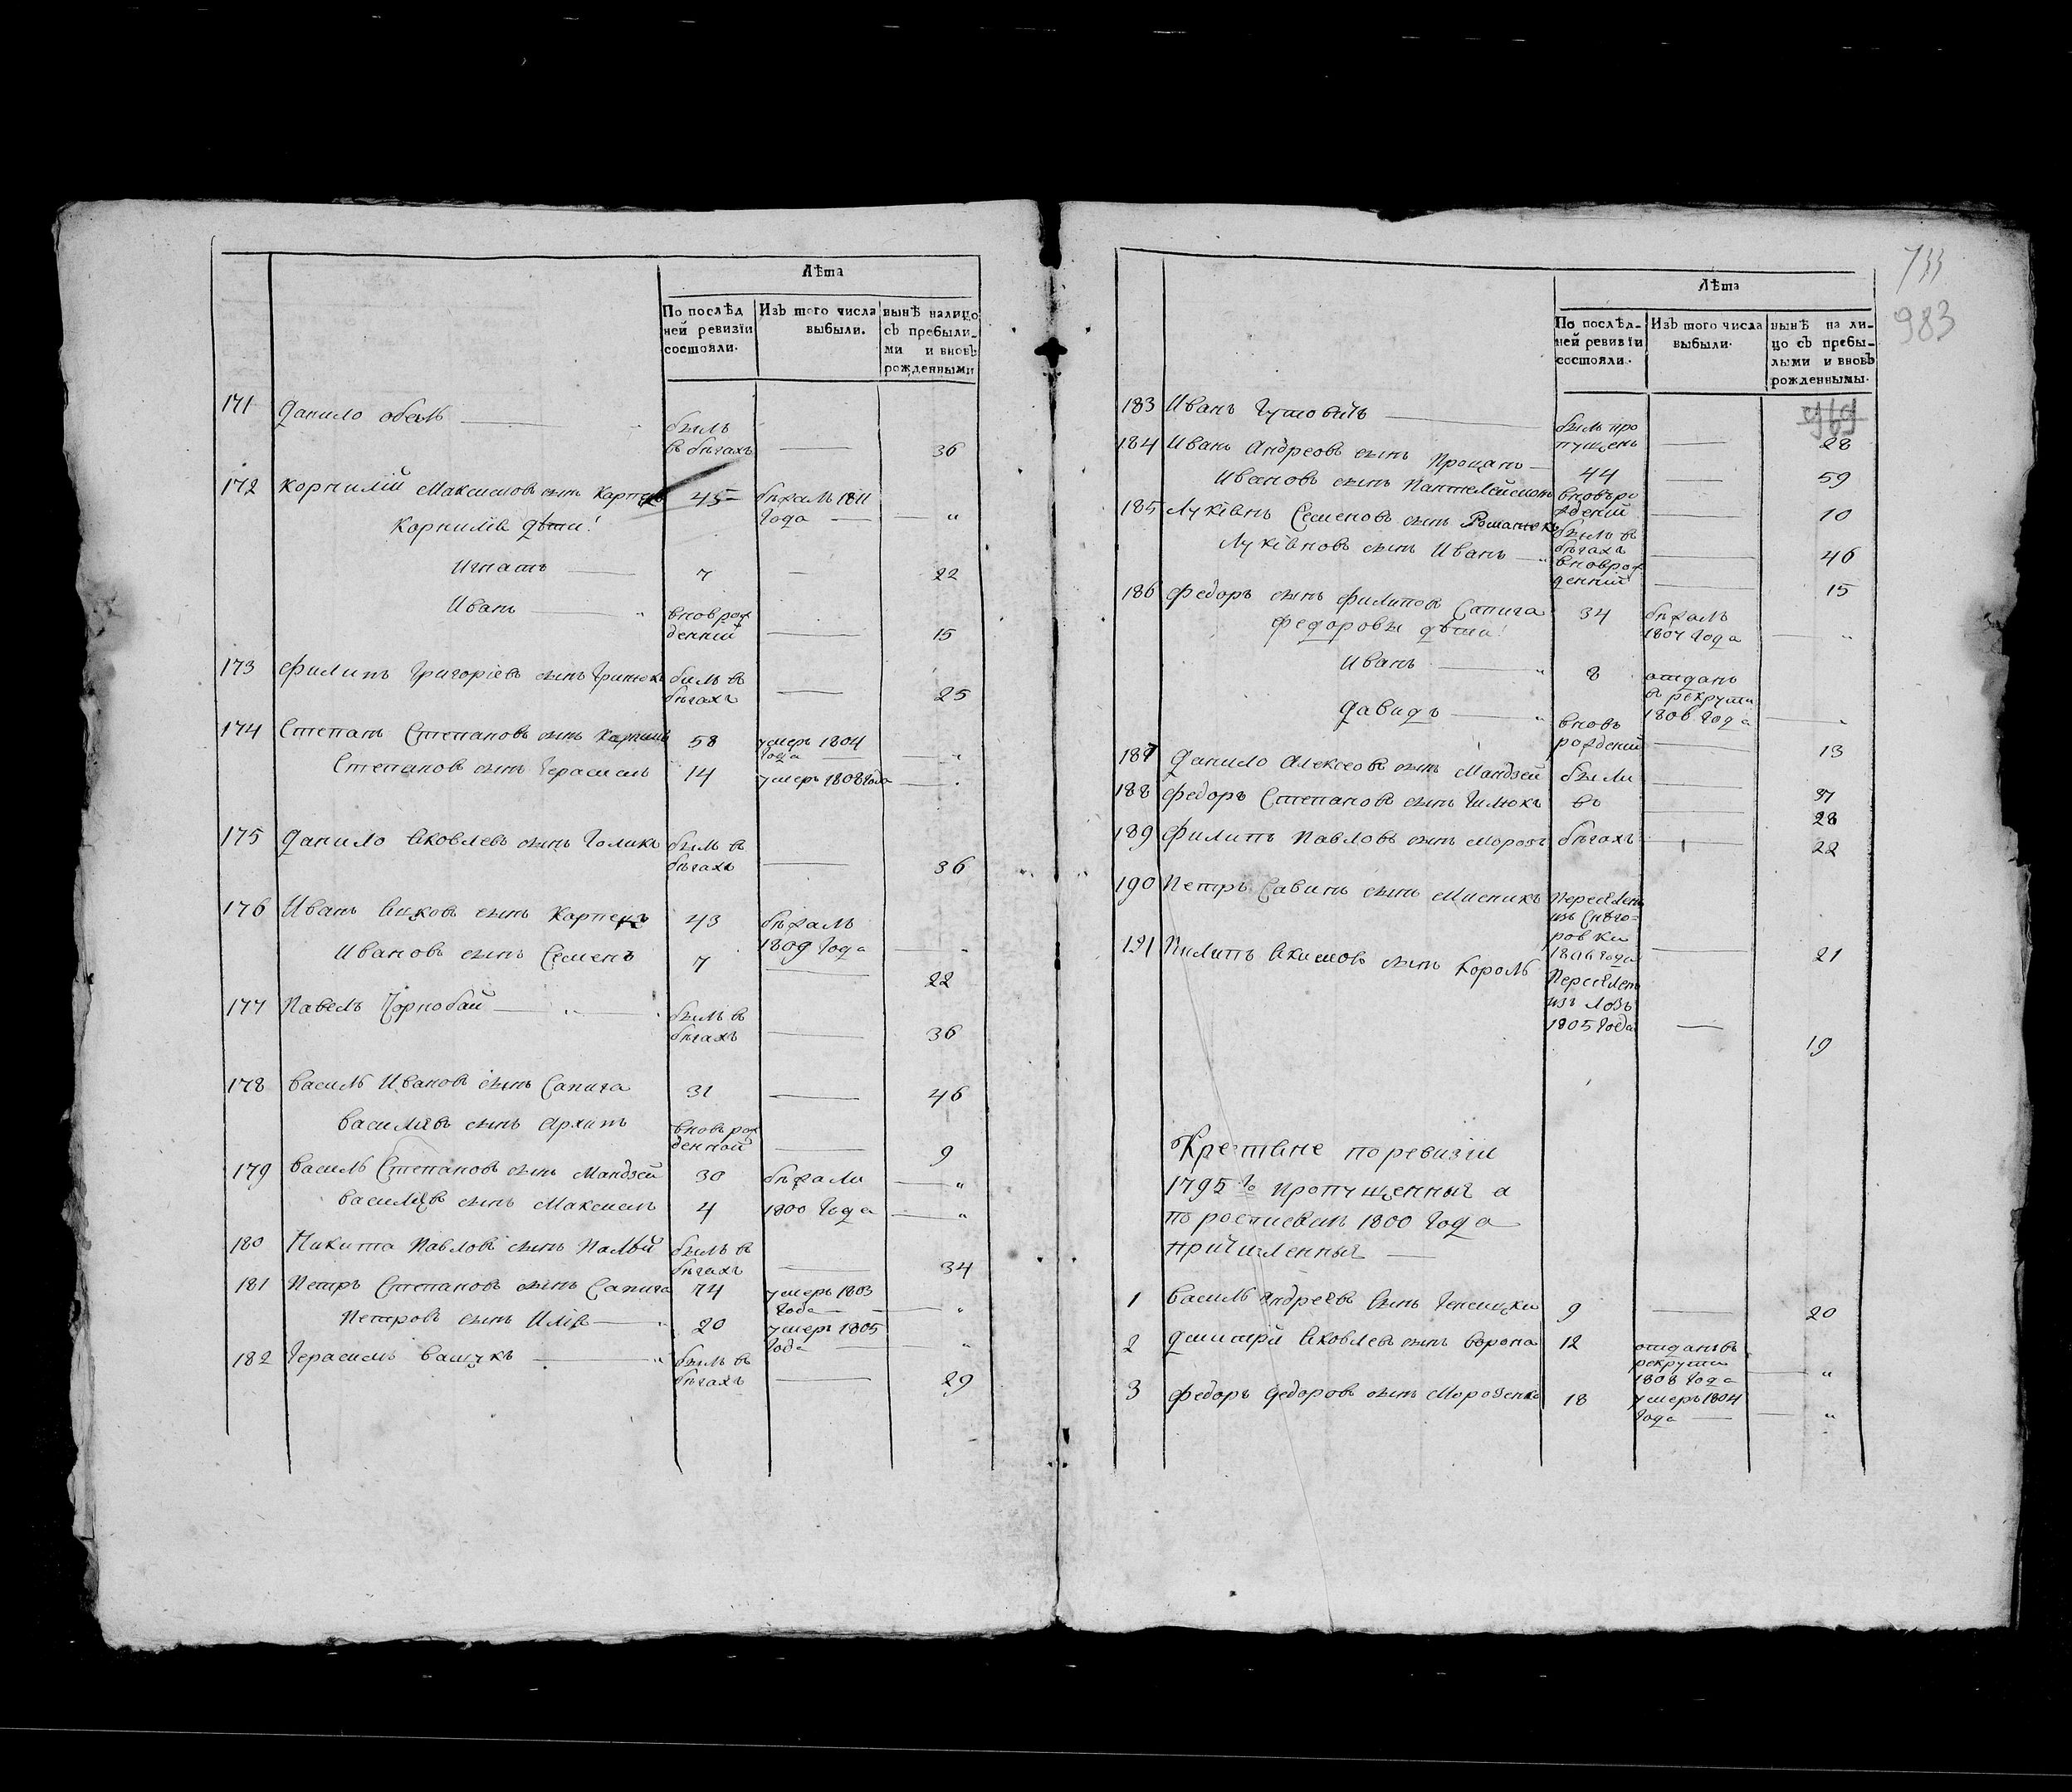 Лѣта
По послѣд
ней ревизїи
состояли.
Изъ того числа
выбыли.
нынѣ налицо
съ пребыли-
ми и вновь
рожденными
171 Данило — былъ
въ бѣгахъ — 36
172 Корнилій Максимовъ сынъ 45 бѣжалъ 1811
года — „
Корнилія дѣти:
Игнатъ — 7 — 22
Иванъ — вновь рож
денній — 15
173 Филипъ Григоріевъ сынъ Гринюкъ былъ въ
бѣгахъ — 25
174 Степанъ Степановъ сынъ 58 умеръ 1804
года — „
Степановъ сынъ Герасимъ 14 умеръ 1808 года — „
175 Данило Яковлевъ сынъ Голикъ былъ въ
бѣгахъ — 36
176 Иванъ сынъ Карпецъ 43 бѣжалъ
1809 года — „
Ивановъ сынъ Семенъ 7 — 22
177 Павелъ Чорнобай — былъ въ
бѣгахъ — 36
178 Василь Ивановъ сынъ Сапига 31 — 46
Василіевъ сынъ Архипъ вновь рож
денной — 9
179 Василь Степановъ сынъ Мандзей 30 бѣжали — „
Василіевъ сынъ Максимъ 4 1800 года — „
180 Никита Павловъ сынъ Палѣй былъ въ
бѣгахъ — 34
181 Петръ Степановъ сынъ Сапига 74 умеръ 1803
года — „
Петровъ сынъ Илія — 20 умеръ 1805
года — „
182 Герасимъ Ващукъ — былъ въ
бѣгахъ — 29
733
983
Лѣта
По послѣд-
ней ревизїи
состояли.
Изъ того числа
выбыли.
нынѣ на ли-
цо съ пребы-
лыми и вновь
рожденнымы.
969
183 Иванъ — былъ про
пущенъ — 28
184 Иванъ Андреовъ сынъ Процанъ — 44 — 59
Ивановъ сынъ Пантелеймонъ вновь ро
жденій — 10
185 Лукіянъ Семеновъ сынъ Романюкъ былъ въ
бѣгахъ — 46
Лукіяновъ сынъ Иванъ — вноврож
денній — 15
186 Федоръ сынъ Филиповъ Сапига 34 бѣжалъ
1807 года — „
Федоровы дѣти:
Иванъ — 8 отданъ
въ рекруты
1806 года — „
Давидъ — вновь
рожденій — 13
187 Данило Алексеовъ сынъ Мандзей были — 37
188 Федоръ Степановъ сынъ въ — 28
189 Филипъ Павловъ сынъ Морозъ бѣгахъ — 22
190 Петръ Савинъ сынъ Мисникъ Переселенъ
изъ Снѣго-
ровки
1806 года — 21
191 Пилипъ Якимовъ сынъ Король Переселенъ
изъ Лозъ
1805 года — 19
Крестяне по ревизіи
1795 го Пропущенныя а
по роспискамъ 1800 года
причисленныя —
1 Василь Андреевъ сынъ 9 — 20
2 Дмитрій Яковлевъ сынъ Ворона 12 отданъ въ
рекруты
1808 года — „
3 Федоръ Федоровъ сынъ Морозенко 18 умеръ 1804
года — „